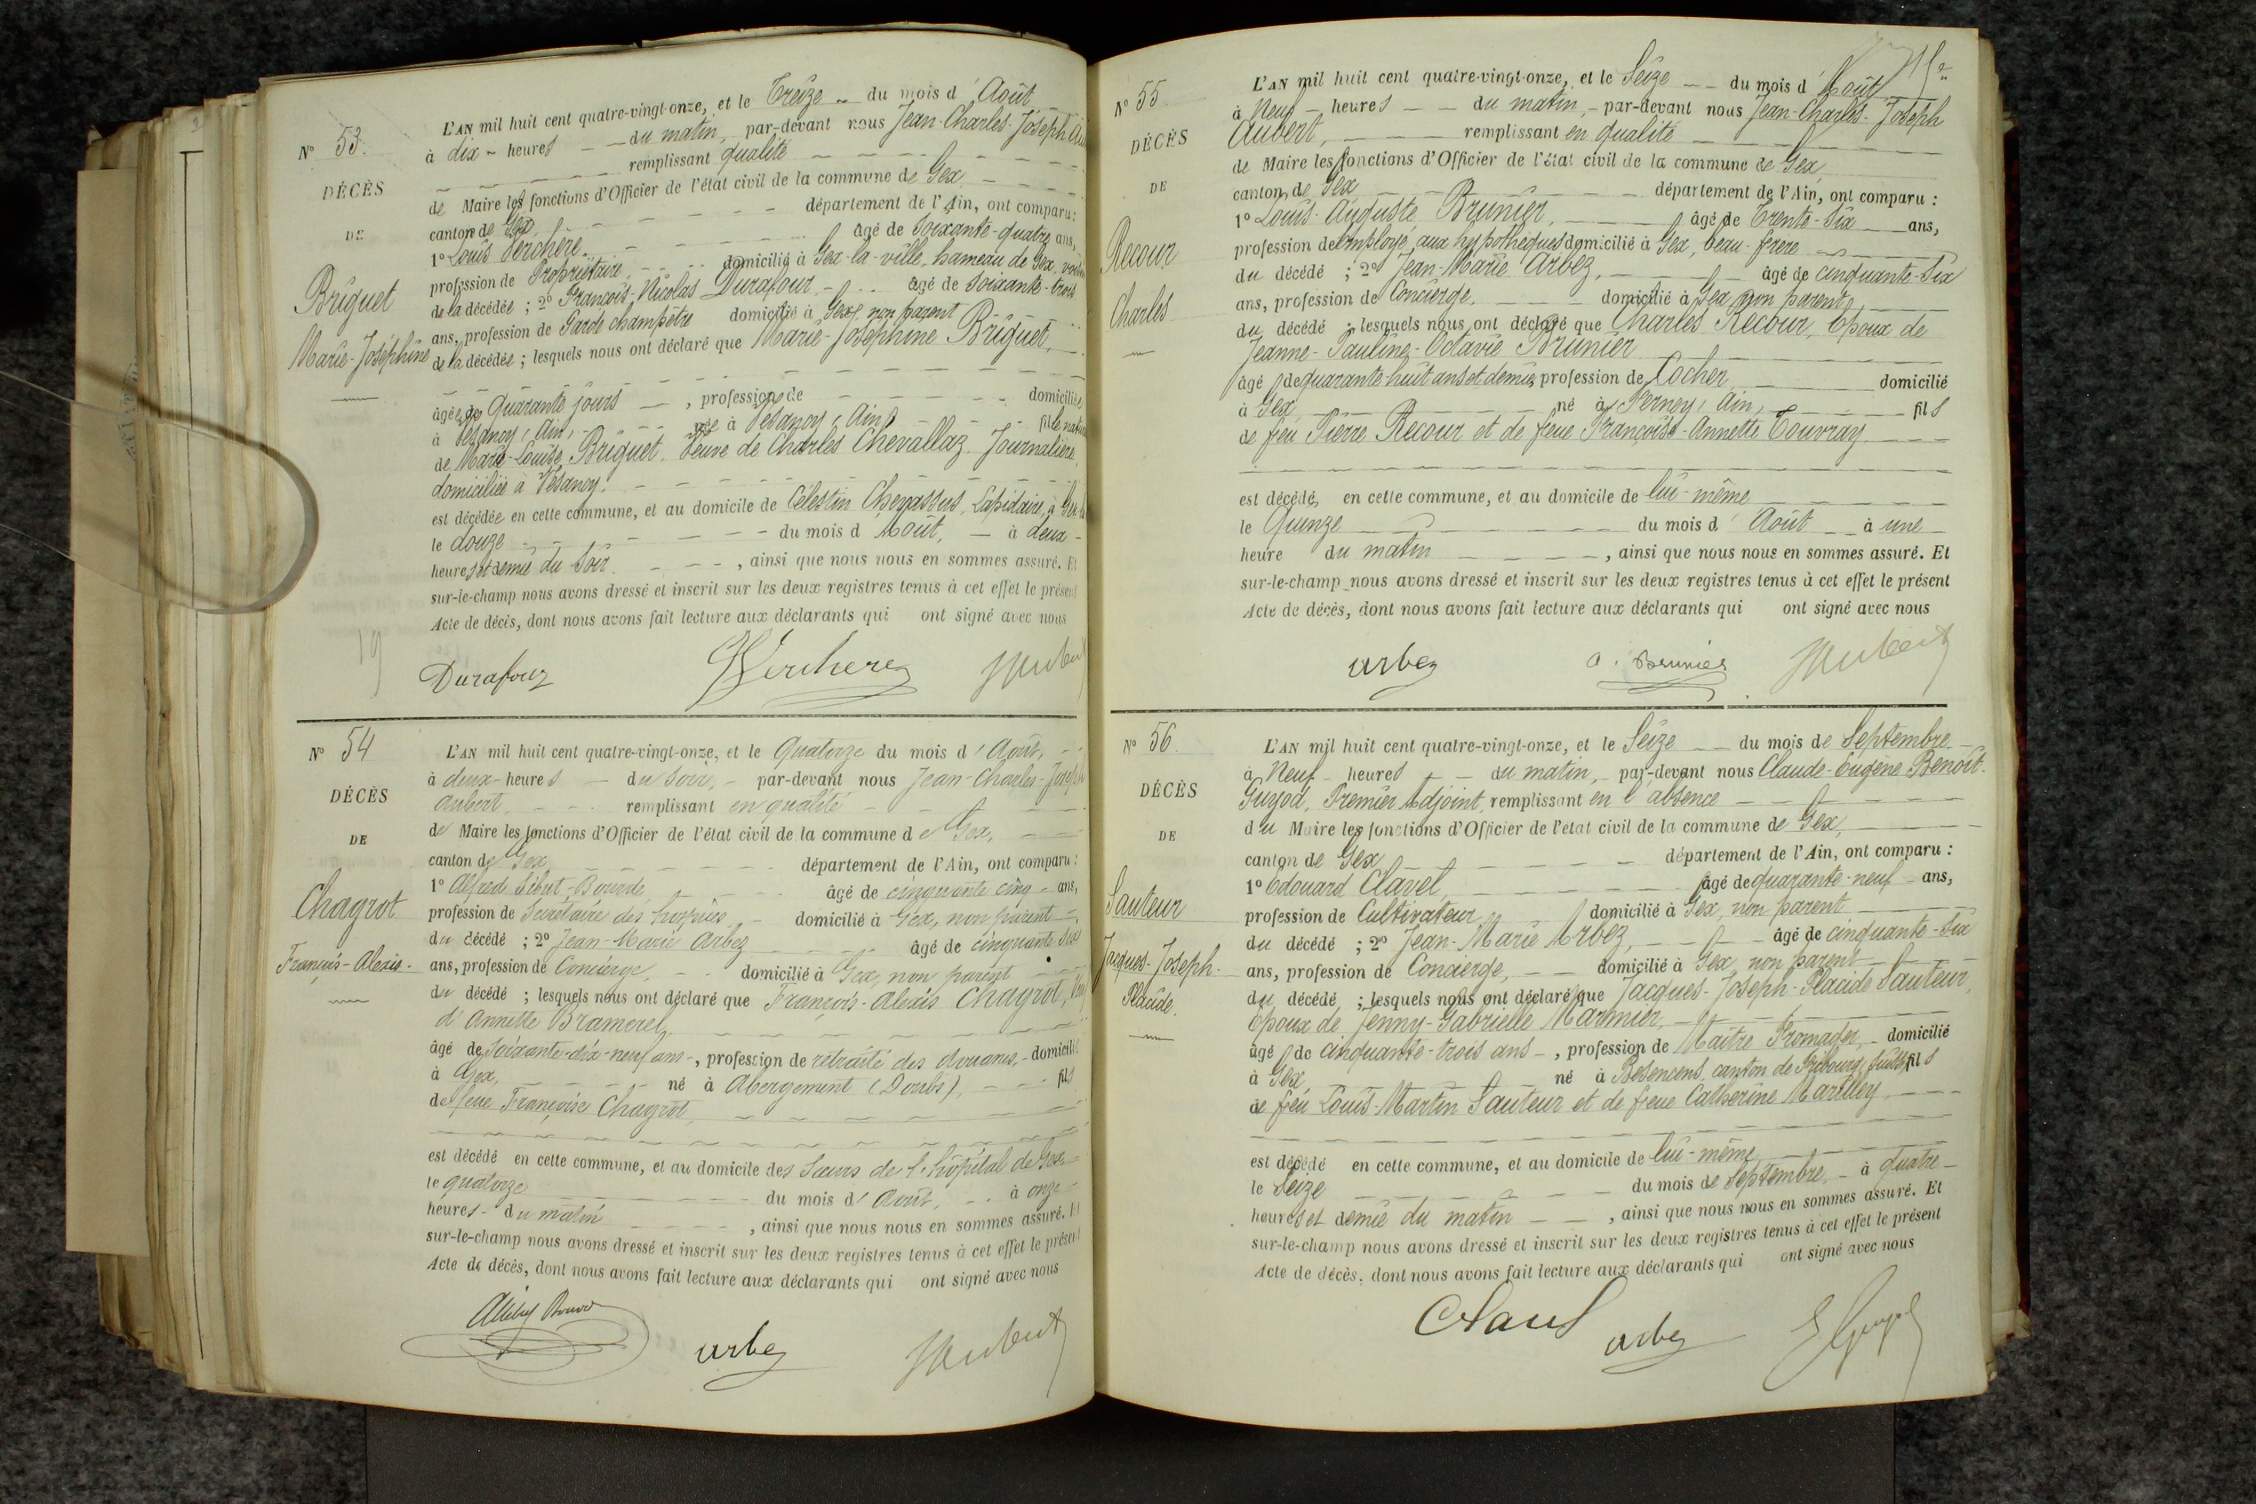 N° 53.
DÉCÈS
DE
Briquet
Marie-Joséphine
L'AN mil huit cent quatre-vingt-onze, et le Treize du mois d'Août
à dix heures du matin, par-devant nous Jean-Charles-Joseph
remplissant qualité
de Maire les fonctions d'Officier de l'état civil de la commune de Gex
canton de Gex département de l'Ain, ont comparu :
1° Louis Verchère âgé de soixante-quatre ans,
profession de Propriétaire, domicilié à Gex-la-ville, hameau de Gex,
de la décédée ; 2° François-Nicolas Durafour, âgé de soixante-trois
ans, profession de Garde champêtre domicilié à Gex, non parent
de la décédée ; lesquels nous ont déclaré que Marie-Joséphine Briquet,
âgée de quarante jours, profession de domiciliée
à Vesancy, Ain, née à Vesancy, Ain, fille
de Marie-Louise Briquet, veuve de Charles Chevallaz, Journalière,
domiciliée à Vesancy.
est décédée en cette commune, et au domicile de Célestin Chevassus, Lapidaire, à
le douze du mois d'Août, à deux
heures et demie du soir, ainsi que nous nous en sommes assuré. Et
sur-le-champ nous avons dressé et inscrit sur les deux registres tenus à cet effet le présent
Acte de décès, dont nous avons fait lecture aux déclarants qui ont signé avec nous
19
Durafour Verchere JAubert
N° 54
DÉCÈS
DE
Chagrot
François-Alexis.
L'AN mil huit cent quatre-vingt-onze, et le Quatorze du mois d'Août,
à deux heures du soir, par-devant nous Jean-Charles-Joseph
Aubert, remplissant en qualité
de Maire les fonctions d'Officier de l'état civil de la commune de Gex,
canton de Gex département de l'Ain, ont comparu :
1° Alfred Sibut-Bourde âgé de cinquante cinq ans,
profession de Secrétaire des hospices, domicilié à Gex, non parent
du décédé ; 2° Jean-Marie Arbez âgé de cinquante six
ans, profession de Concierge, domicilié à Gex, non parent
du décédé ; lesquels nous ont déclaré que François-Alexis Chagrot,
d'Annette Bramerel,
âgé de soixante-dix-neuf ans, profession de retraité des douanes, domicilié
à Gex, né à Abergement (Doubs), fils
de feue Françoise Chagrot,
est décédé en cette commune, et au domicile des Sœurs de l'hôpital de Gex
le quatorze du mois d'Août, à onze
heures du matin, ainsi que nous nous en sommes assuré. Et
sur-le-champ nous avons dressé et inscrit sur les deux registres tenus à cet effet le présent
Acte de décès, dont nous avons fait lecture aux déclarants qui ont signé avec nous
Arbez JAubert
N° 55
DÉCÈS
DE
Recour
Charles
L'AN mil huit cent quatre-vingt-onze, et le Seize du mois d'Août
à Neuf heures du matin, par-devant nous Jean-Charles-Joseph
Aubert, remplissant en qualité
de Maire les fonctions d'Officier de l'état civil de la commune de Gex,
canton de Gex département de l'Ain, ont comparu :
1° Louis-Auguste Brunier, âgé de Trente-Six ans,
profession de employé aux hypothèques domicilié à Gex, beau-frère
du décédé ; 2° Jean-Marie Arbez, âgé de cinquante-six
ans, profession de Concierge, domicilié à Gex, non parent
du décédé ; lesquels nous ont déclaré que Charles Recour, Epoux de
Jeanne-Pauline-Octavie Brunier
âgé de quarante-huit ans et demie, profession de Cocher domicilié
à Gex né à Ferney, Ain, fils
de feu Pierre Recour et de feue Françoise-Annette Touvray
est décédé en cette commune, et au domicile de lui-même
le Quinze du mois d'Août à une
heure du matin, ainsi que nous nous en sommes assuré. Et
sur-le-champ nous avons dressé et inscrit sur les deux registres tenus à cet effet le présent
Acte de décès, dont nous avons fait lecture aux déclarants qui ont signé avec nous
Arbez a. Brunier JAubert
N° 56.
DÉCÈS
DE
Sauteur
Jacques-Joseph-
Placide.
L'AN mil huit cent quatre-vingt-onze, et le Seize du mois de Septembre
à Neuf heures du matin, par-devant nous Claude-Eugène-Benoit-
Guyod, Premier Adjoint, remplissant en l'absence
du Maire les fonctions d'Officier de l'état civil de la commune de Gex,
canton de Gex département de l'Ain, ont comparu :
1° Edouard Clavel, âgé de quarante-neuf ans,
profession de Cultivateur domicilié à Gex, non parent
du décédé ; 2° Jean-Marie Arbez, âgé de cinquante-six
ans, profession de Concierge, domicilié à Gex, non parent
du décédé ; lesquels nous ont déclaré que Jacques-Joseph-Placide Sauteur,
Epoux de Jenny-Gabrielle Marmier,
âgé de cinquante-trois ans, profession de Maître Fromager, domicilié
à Gex né à Besencens, canton de Fribourg, Suisse, fils
de feu Louis-Martin Sauteur et de feue Catherine Marilley
est décédé en cette commune, et au domicile de lui-même
le Seize du mois de Septembre, à quatre
heures et demie du matin, ainsi que nous nous en sommes assuré. Et
sur-le-champ nous avons dressé et inscrit sur les deux registres tenus à cet effet le présent
Acte de décès, dont nous avons fait lecture aux déclarants qui ont signé avec nous
Clavel Arbez E Guyod